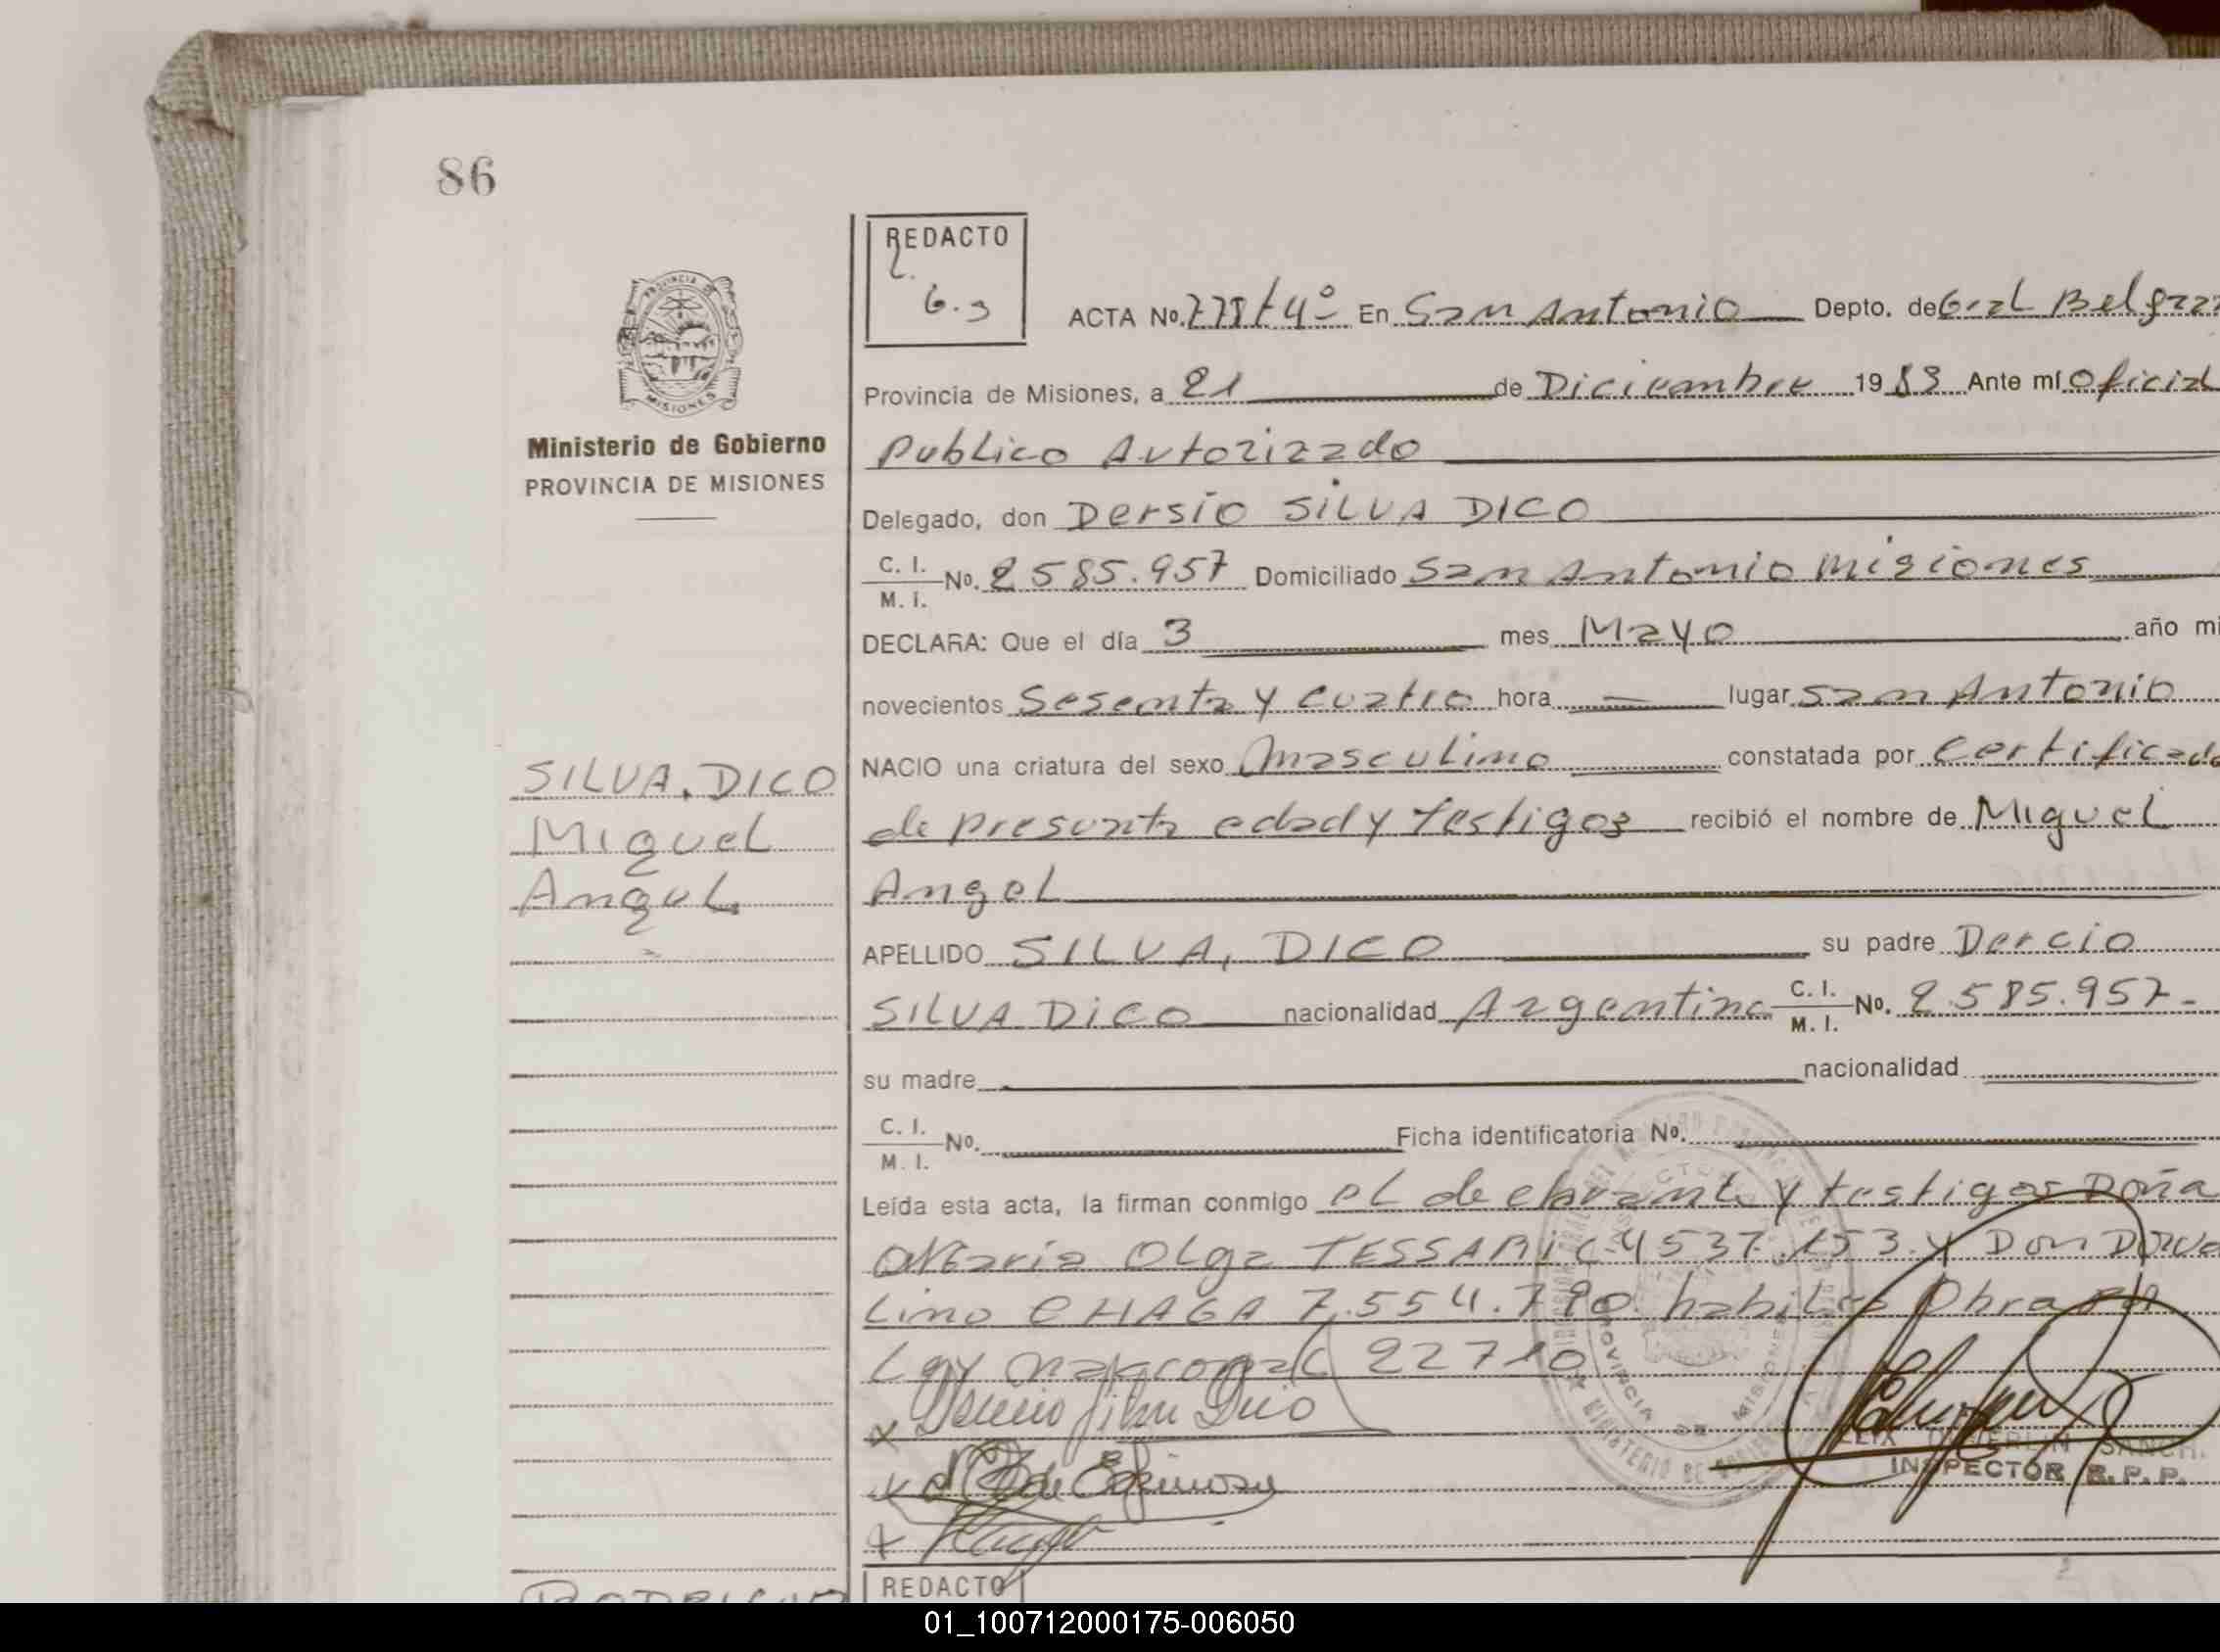 86
REDACTO
6.3
ACTA No. 778 t 4º En San Antonio Depto. de Gral Belgran
Provincia de Misiones, a 21 de Diciembre 1983 Ante mí Oficial
Publico Autorizado
Delegado, don Dersio SILVA DICO
C. I.
M. I. No. 2585.957 Domiciliado San Antonio Misiones
DECLARA: Que el día 3 mes Mayo año mi
novecientos Sesenta y cuatro hora lugar San Antonio
NACIO una criatura del sexo masculino constatada por Certificado
de presunta edad y testigos recibió el nombre de Miguel
Angel
APELLIDO SILVA, DICO su padre Dercio
SILVA DICO nacionalidad Argentina C. I. M. I. No. 2.585.957-
su madre nacionalidad
C. I.
M. I. No. Ficha identificatoria No.
Leída esta acta, la firman conmigo el declarante y testigos Doña
Maria Olga TESSARI C 4537.153. y Don Dorva
Lino CHAGA 7.554.790 habiles Obra en
Ley nacional 22710
Dercio Silva Dico
de Espinosa
INSPECTOR R.P.P.
PROVINCIA DE MISIONES
MISIONES
Ministerio de Gobierno
PROVINCIA DE MISIONES
SILVA, DICO
Miguel
Angel
REDACTO
01_100712000175-006050